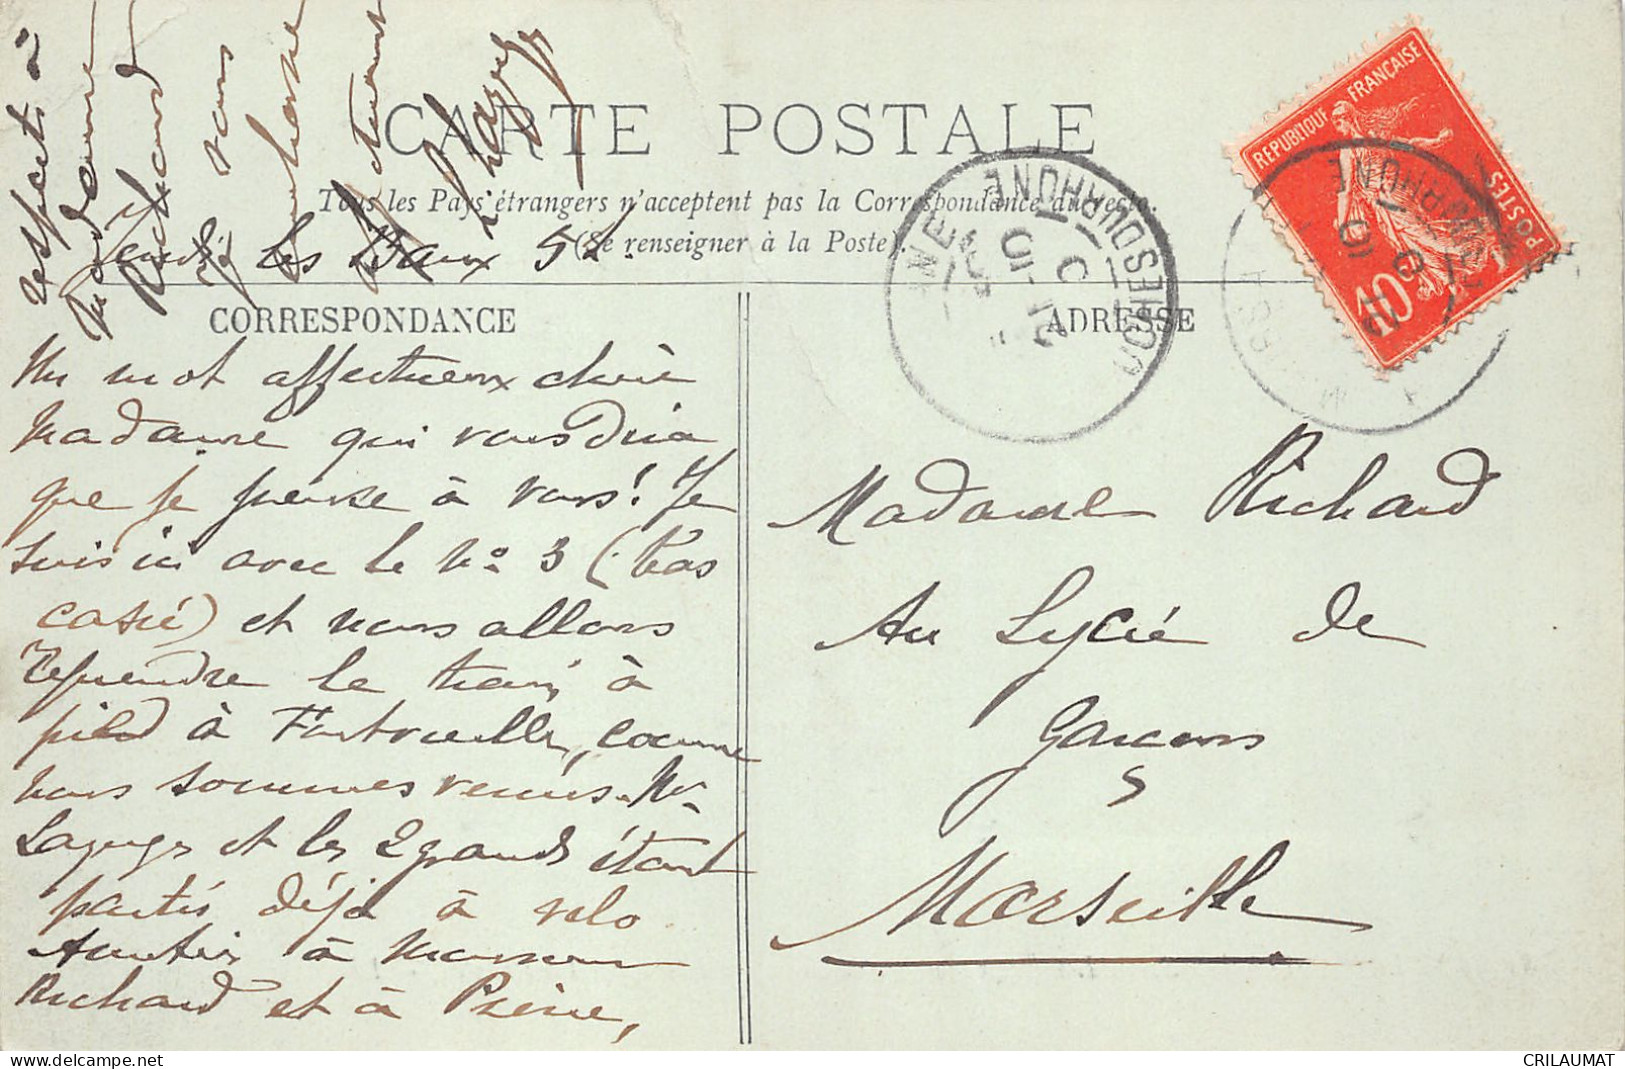 CARTE POSTALE
Tous les Pays étrangers n'acceptent pas la Correspondance au recto.
(Se renseigner à la Poste).
CORRESPONDANCE
ADRESSE
REPUBLIQUE FRANÇAISE
POSTES
10c
BOUCHES-DU-RHONE
Jeudi les Baux 5
Un mot affectueux chère
Madame qui vous dira
que je pense à vous! Je
suis ici avec le No 3 (bas
casé) et nous allons
reprendre le train à
pied à Fontvieille, comme
nous sommes venus. Mr
et les 2 grands étant
partis déjà à vélo
Amitiés à Monsieur
Richard et à Pierre,
respects à
Madame
Richard
vous
Madame Richard
Au Lycée de
Garçons
Marseille
delcampe.net
CRILAUMAT